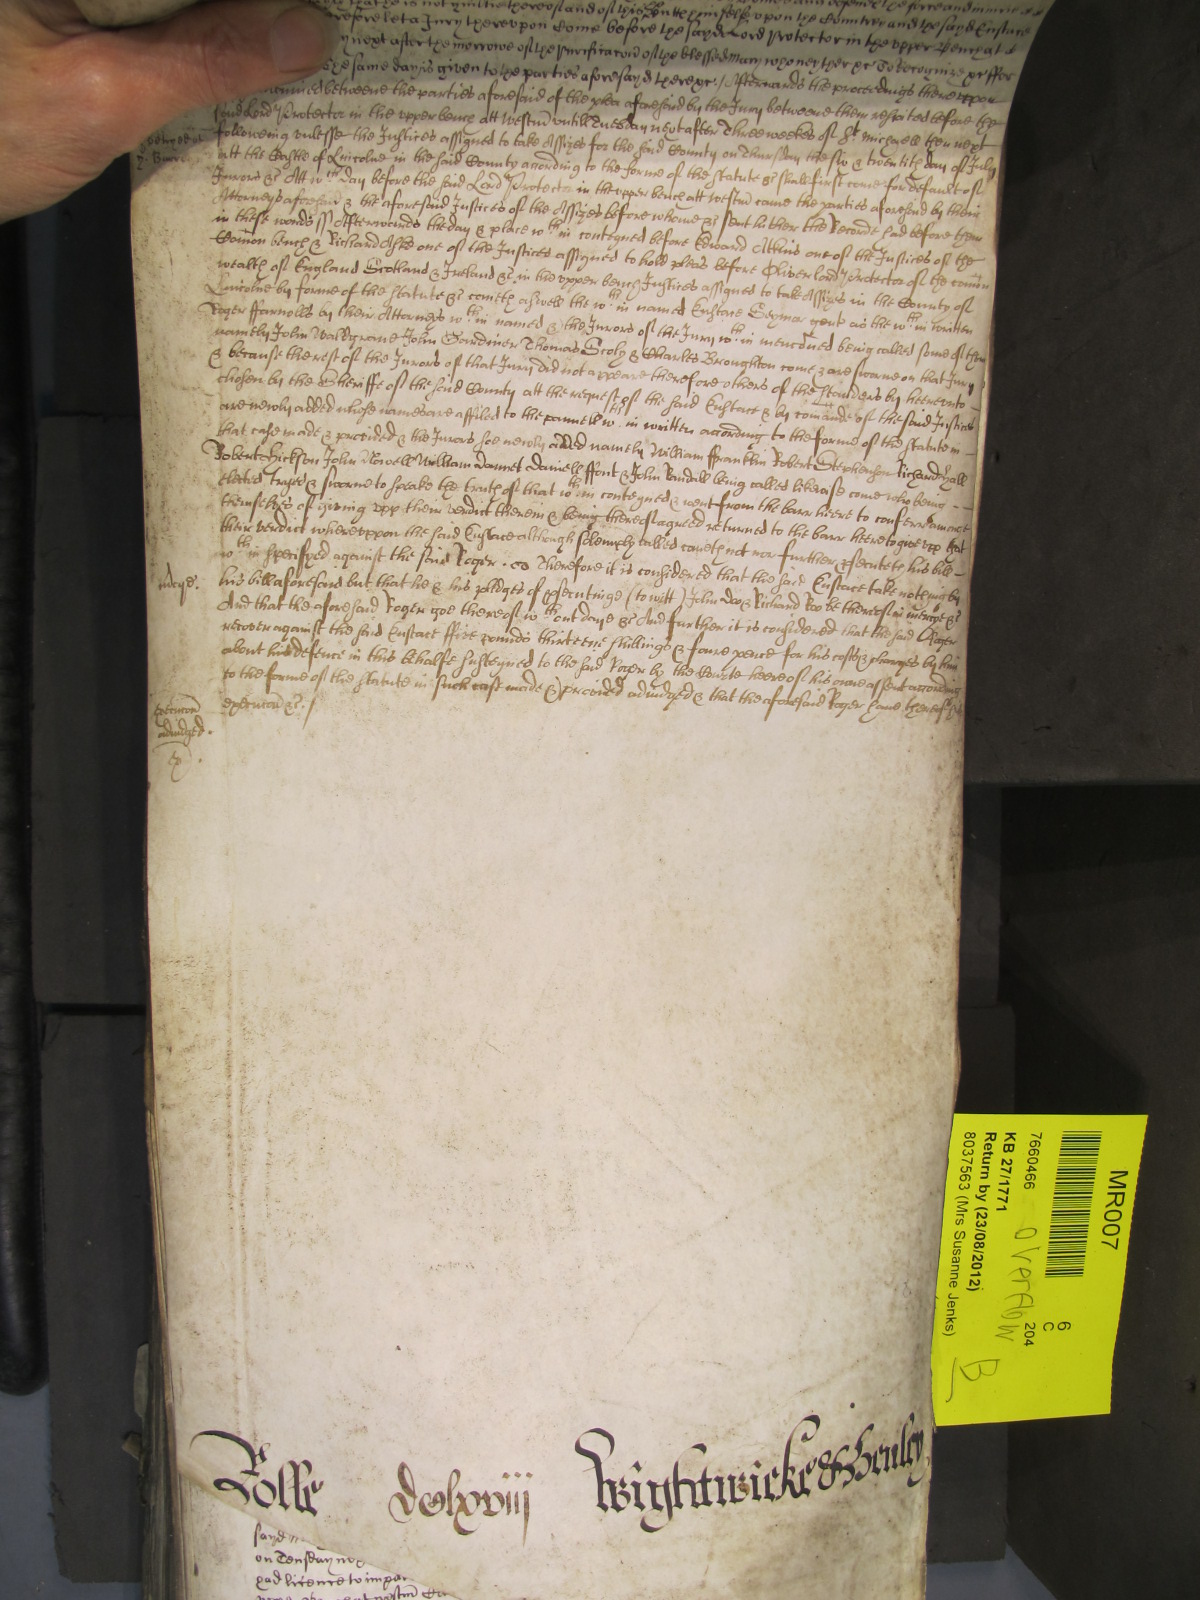 that he is not guiltie thereof and of this putteth himselfe upon the Countrey and the sayd Eustace
Therefore let a Jury thereupon Come before the sayd Lord Protector in the upper Bench at
next after the morrowe of the purificacon of the blessed mary who neyther &c To Recognize &c ffor
The same day is given to the parties aforesayd there &c. / Afterwards the proceedings thereupon
betweene the parties aforesaid of the plea aforesaid by the Jury betweene them respited before the
said Lord Protector in the upper bench att Westm̄ untill Tuesday next after Three weekes of St michaell then next
following unlesse the Justices assigned to take Assizes for the said County on Thursday the six & twentith day of July
att the Castle of Lincolne in the said County according to the forme of the statute &c shall first come for default of
Jurors &c. Att wch day before the said Lord Protector in the upper bench att westm̄ came the parties aforesaid by their
Attorneys aforesaid & the aforesaid Justices of the Assizes before whome &c sent hither the Record had before them
in these words ss Afterwards the day & place wthin conteyned before Edward Atkins one of the Justices of the
Com̄on bench & Richard Aske one of the Justices assigned to hold pleas before Oliver lord Protector of the com̄on
wealth of England Scotland & Ireland &c in the upper bench Justices assigned to take Assizes in the County of
Lincolne by forme of the statute &c cometh aswell the wthin named Eustace Seymor gent as the wthin written
Roger ffarnolls by their Attorneys wthin named & the Jurors of the Jury wthin menc̄oned being called some of them
namely John Waldgrame John Gardiner Thomas Scoly & Charles Broughton come & are sworne on that Jury
& because the rest of the Jurors of that Jury did not appeare therefore others of the standers by heereunto
chosen by the Sheriffe of the said County att the request of the said Eustace & by com̄ande of the said Justices
are newly added whose names are affiled to the pannell wthin written according to the forme of the statute in
that case made & provided & the Jurors soe newly added namely William ffranklin Robert Stephenson Richard Hall
Robert Hickson John Nowell William dannet daniell ffont & John Randall being called likewise come who being
elected tryed & sworne to speake the truth of that wthin conteyned & went from the barr heere to conferr amongst
themselves of giving upp their verdict therein & being thereof agreed returned to the barr heere to give up that
their verdict whereuppon the said Eustace although solemnly called cometh not nor further psecuteth his bill
wthin specifyed against the said Roger. Therefore it is considered that the said Eustace take nothing by
his bill aforesaid but that he & his pledges of psecutinge (to witt) John doo & Richard Roo be thereof in mercye &c
And that the aforesaid Roger goe thereof wthout daye &c And further it is considered that the said Roger
recover against the said Eustace ffive pounds thirteene shillings & foure pence for his costs & charges by him
about his defence in this behalfe susteyned to the said Roger by the Courte heere of his owne assent according
to the forme of the statute in such case made & provided adiudged & that the aforesaid Roger have thereof
execuc̄on &c. /
execuc̄on
adiudged.
Rolle dclxviii Wightwicke & Henley
sayd
on Tensday
had licence to impar
MR007
6
C
204
7660466
overflow
B
KB 27/1771
Return by (23/08/2012)
8037563 (Mrs Susanne Jenks)